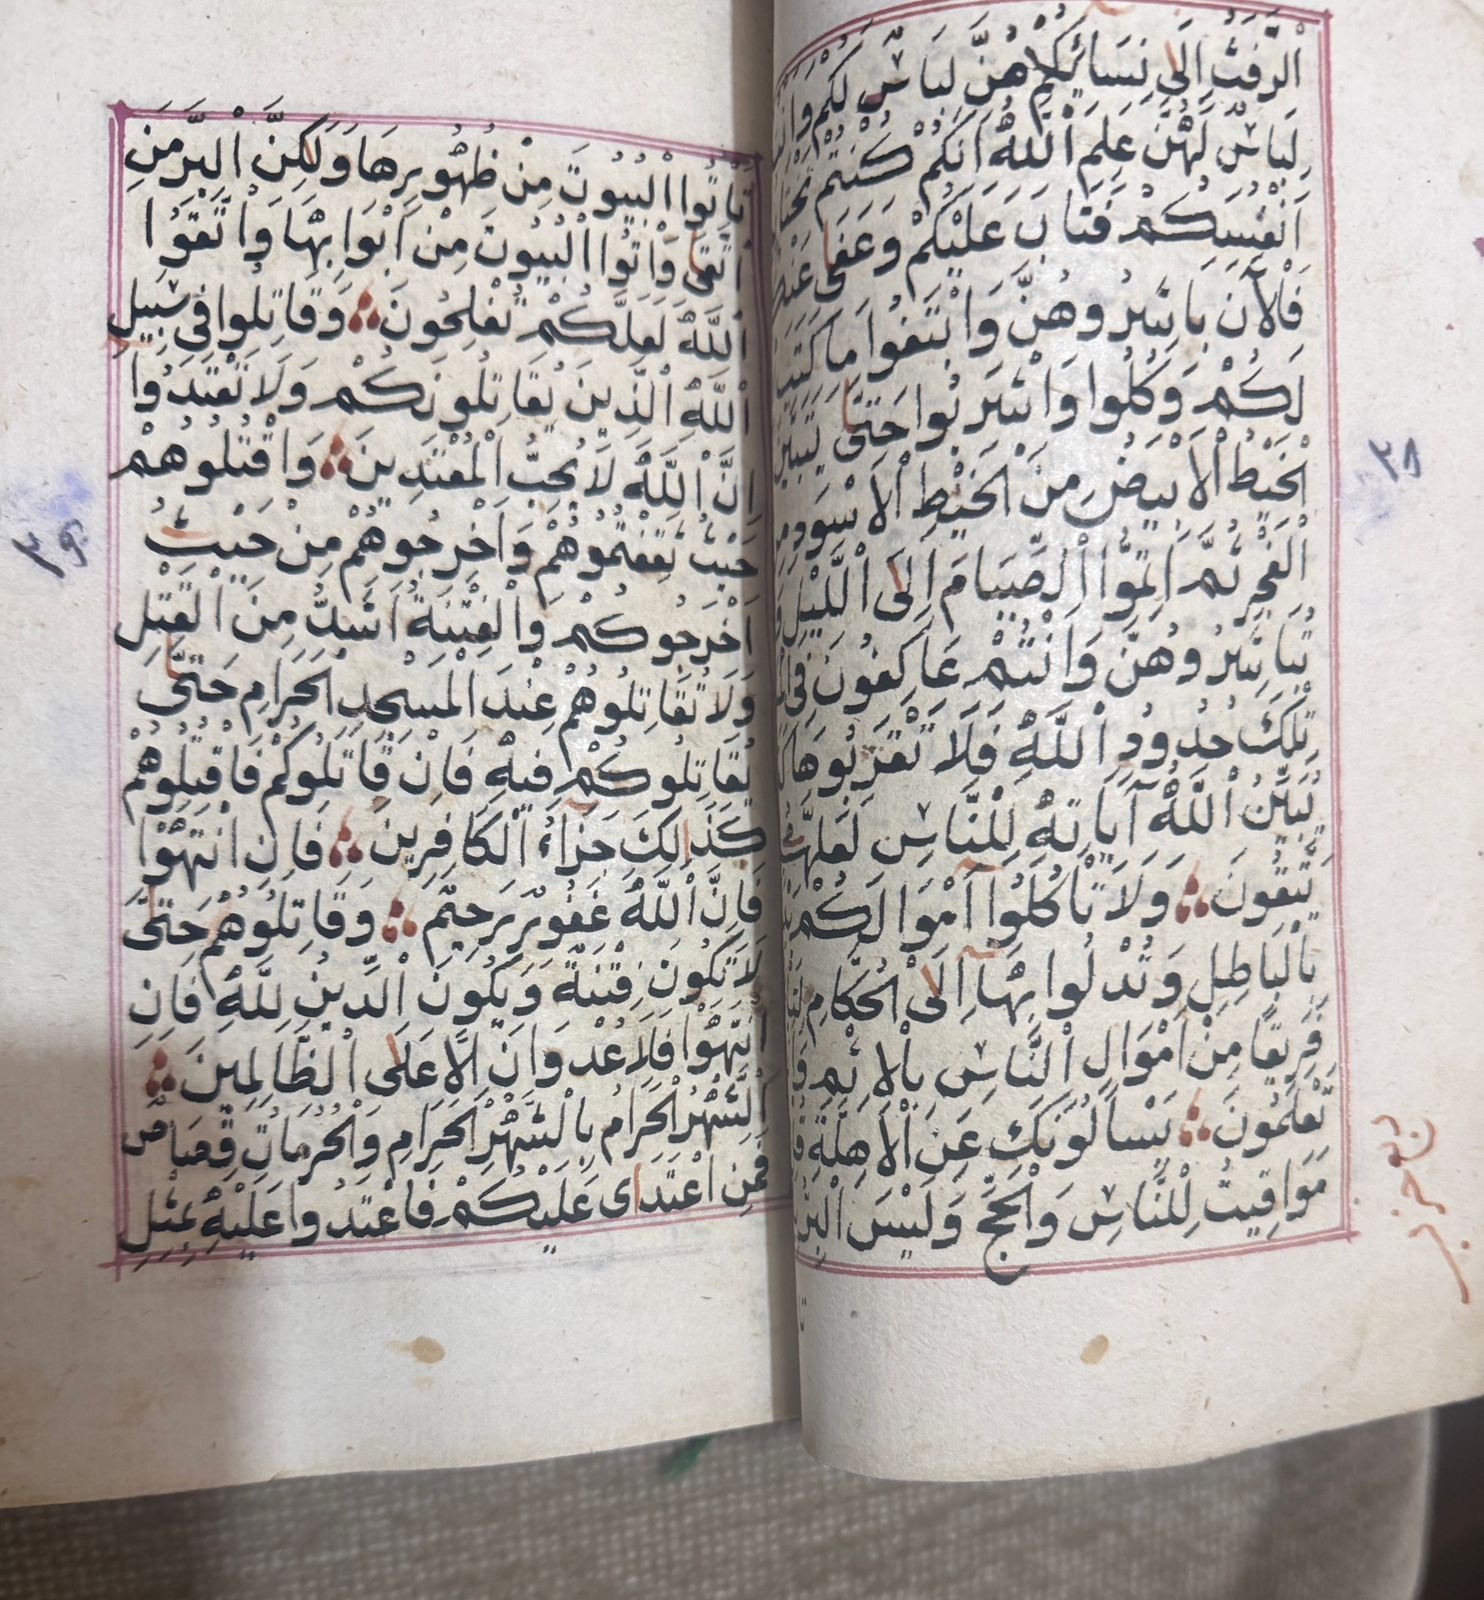 اَلرَّفَثُ اِلَى نِسَائِكُمْ هُنَّ لِبَاسٌ لَكُمْ
لِبَاسٌ لَهُنَّ عَلِمَ اللّٰهُ اَنَّكُمْ كُنْتُمْ
اَنْفُسَكُمْ فَتَابَ عَلَيْكُمْ وَعَفَى
فَالْآنَ بَاشِرُوهُنَّ وَابْتَغُوا مَا كَتَبَ
لَكُمْ وَكُلُوا وَاشْرَبُوا حَتَّى يَتَبَيَّنَ
الْخَيْطُ الْاَبْيَضُ مِنَ الْخَيْطِ الْاَسْوَدِ
الْفَجْرِ ثُمَّ اَتِمُّوا الصِّيَامَ اِلَى اللَّيْلِ
تُبَاشِرُوهُنَّ وَاَنْتُمْ عَاكِفُونَ فِى
تِلْكَ حُدُودُ اللّٰهِ فَلَا تَقْرَبُوهَا
يُبَيِّنُ اللّٰهُ آيَاتِهِ لِلنَّاسِ لَعَلَّهُمْ
يَتَّقُونَ وَلَا تَأْكُلُوا اَمْوَالَكُمْ
بِالْبَاطِلِ وَتُدْلُوا بِهَا اِلَى الْحُكَّامِ
فَرِيقًا مِنْ اَمْوَالِ النَّاسِ بِالْاِثْمِ
تَعْلَمُونَ يَسْاَلُونَكَ عَنِ الْاَهِلَّةِ
مَوَاقِيتُ لِلنَّاسِ وَالْحَجِّ وَلَيْسَ الْبِرُّ
٣٨
تَأْتُوا الْبُيُوتَ مِنْ ظُهُورِهَا وَلَكِنَّ الْبِرَّ مَنِ
اتَّقَى وَاْتُوا الْبُيُوتَ مِنْ اَبْوَابِهَا وَاتَّقُوا
اللّٰهَ لَعَلَّكُمْ تُفْلِحُونَ وَقَاتِلُوا فِى سَبِيلِ
اللّٰهِ الَّذِينَ يُقَاتِلُونَكُمْ وَلَا تَعْتَدُوا
اِنَّ اللّٰهَ لَا يُحِبُّ الْمُعْتَدِينَ وَاقْتُلُوهُمْ
حَيْثُ ثَقِفْتُمُوهُمْ وَاَخْرِجُوهُمْ مِنْ حَيْثُ
اَخْرَجُوكُمْ وَالْفِتْنَةُ اَشَدُّ مِنَ الْقَتْلِ
وَلَا تُقَاتِلُوهُمْ عِنْدَ الْمَسْجِدِ الْحَرَامِ حَتَّى
يُقَاتِلُوكُمْ فِيهِ فَاِنْ قَاتَلُوكُمْ فَاقْتُلُوهُمْ
كَذَالِكَ جَزَآءُ الْكَافِرِينَ فَاِنِ انْتَهَوْا
فَاِنَّ اللّٰهَ غَفُورٌ رَحِيمٌ وَقَاتِلُوهُمْ حَتَّى
لَا تَكُونَ فِتْنَةٌ وَيَكُونَ الدِّينُ لِلّٰهِ فَاِنِ
انْتَهَوْا فَلَا عُدْوَانَ اِلَّا عَلَى الظَّالِمِينَ
اَلشَّهْرُ الْحَرَامُ بِالشَّهْرِ الْحَرَامِ وَالْحُرُمَاتُ قِصَاصٌ
فَمَنِ اعْتَدَاى عَلَيْكُمْ فَاعْتَدُوا عَلَيْهِ بِمِثْلِ